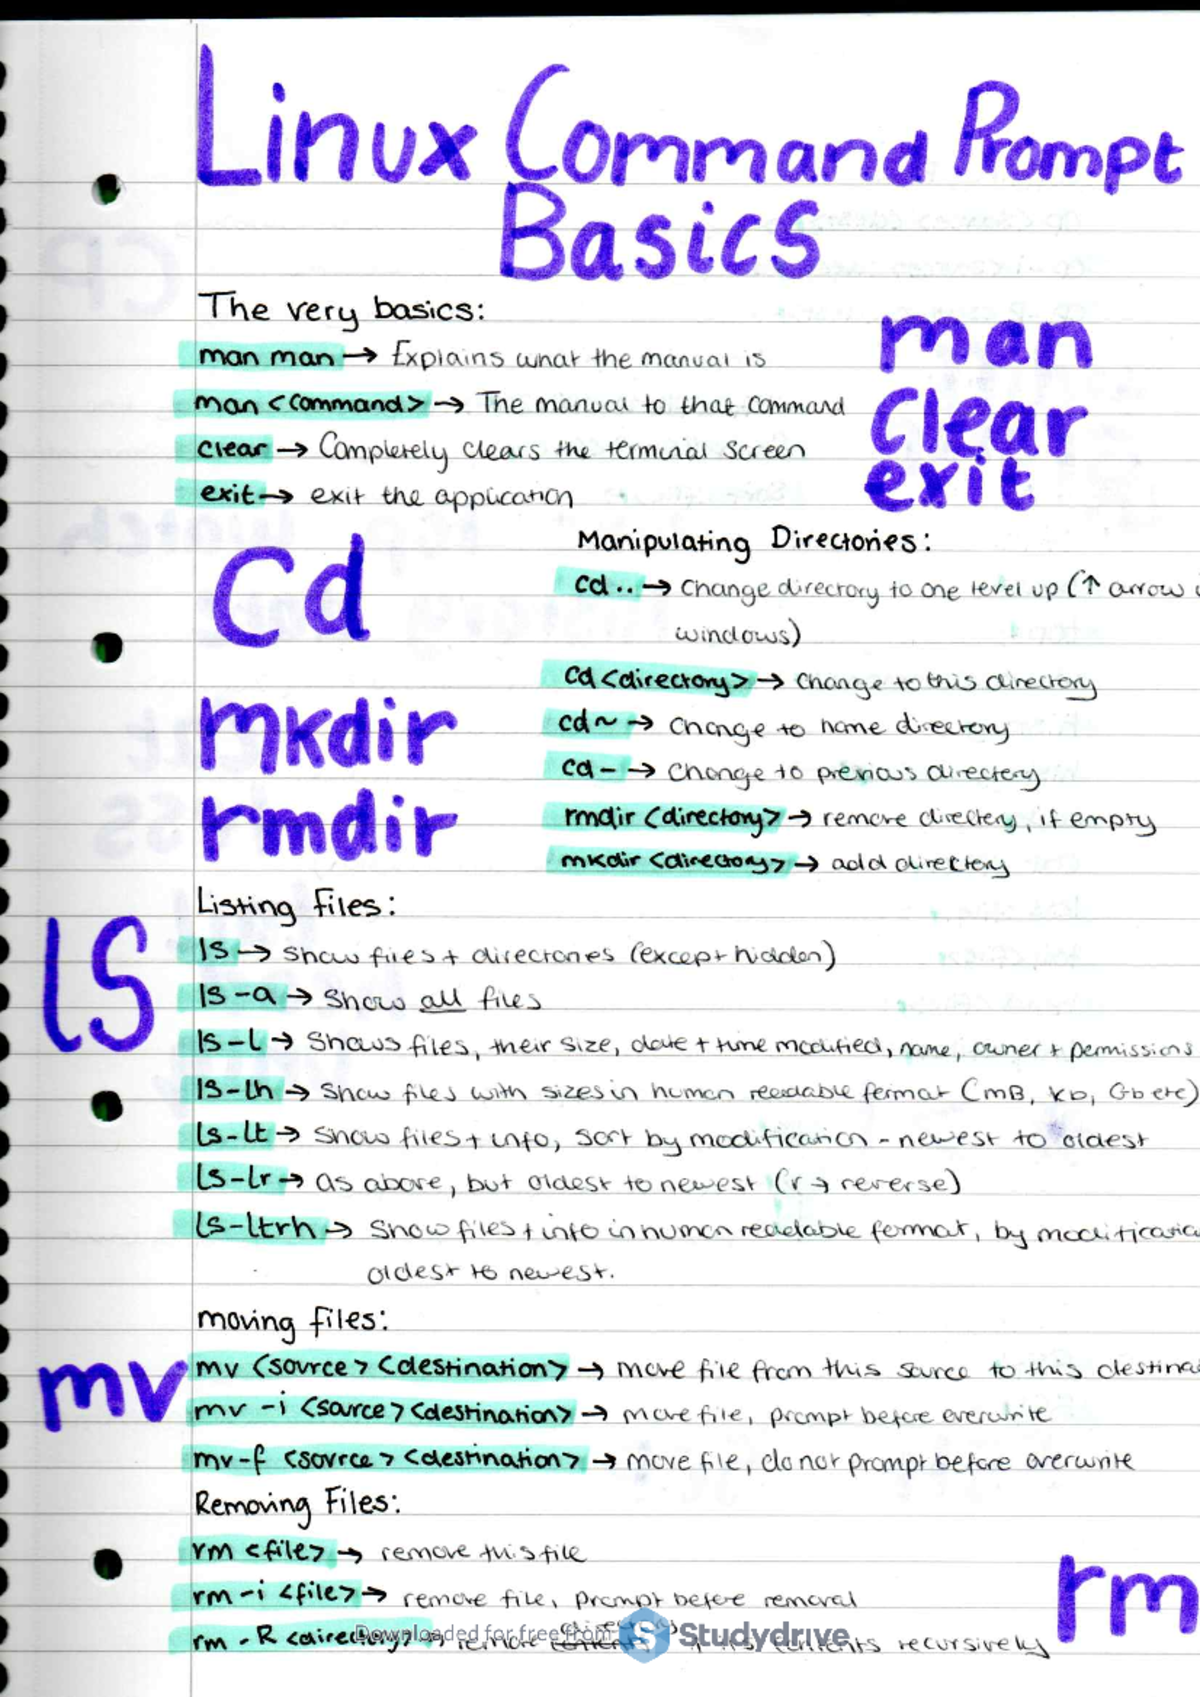 Linux Command Prompt
Basics
The very basics:
man man → Explains what the manual is
man <command> → The manual to that command
clear → Completely clears the terminal screen
exit → exit the application
man
clear
exit
cd
mkdir
rmdir
Manipulating Directories:
cd .. → Change directory to one level up (↑ arrow
windows)
cd <directory> → change to this directory
cd ~ → Change to home directory
cd - → Change to previous directory
rmdir <directory> → remove directory, if empty
mkdir <directory> → add directory
ls
Listing files:
ls → Show files + directories (except hidden)
ls -a → Show all files
ls -l → Shows files, their size, date + time modified, name, owner + permissions
ls -lh → Show files with sizes in human readable format (mB, Kb, Gb etc)
ls -lt → Show files + info, sort by modification - newest to oldest
ls -lr → as above, but oldest to newest (r → reverse)
ls -ltrh → Show files + info in human readable format, by modificatio
oldest to newest.
moving files:
mv
mv <source> <destination> → move file from this source to this destina
mv -i <source> <destination> → move file, prompt before overwrite
mv -f <source> <destination> → move file, do not prompt before overwrite
Removing Files:
rm <file> → remove this file
rm -i <file> → remove file, prompt before removal
rm -R <directory> → remove contents recursively
rm
Downloaded for free from Studydrive